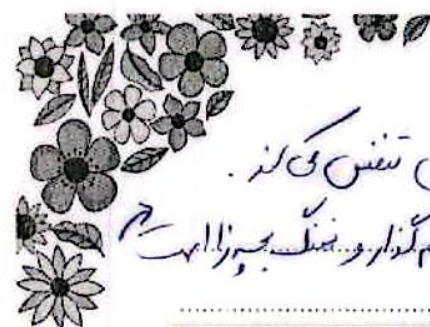 تنفس می‌کند .
گذار و نهنگ بچه‌زا است